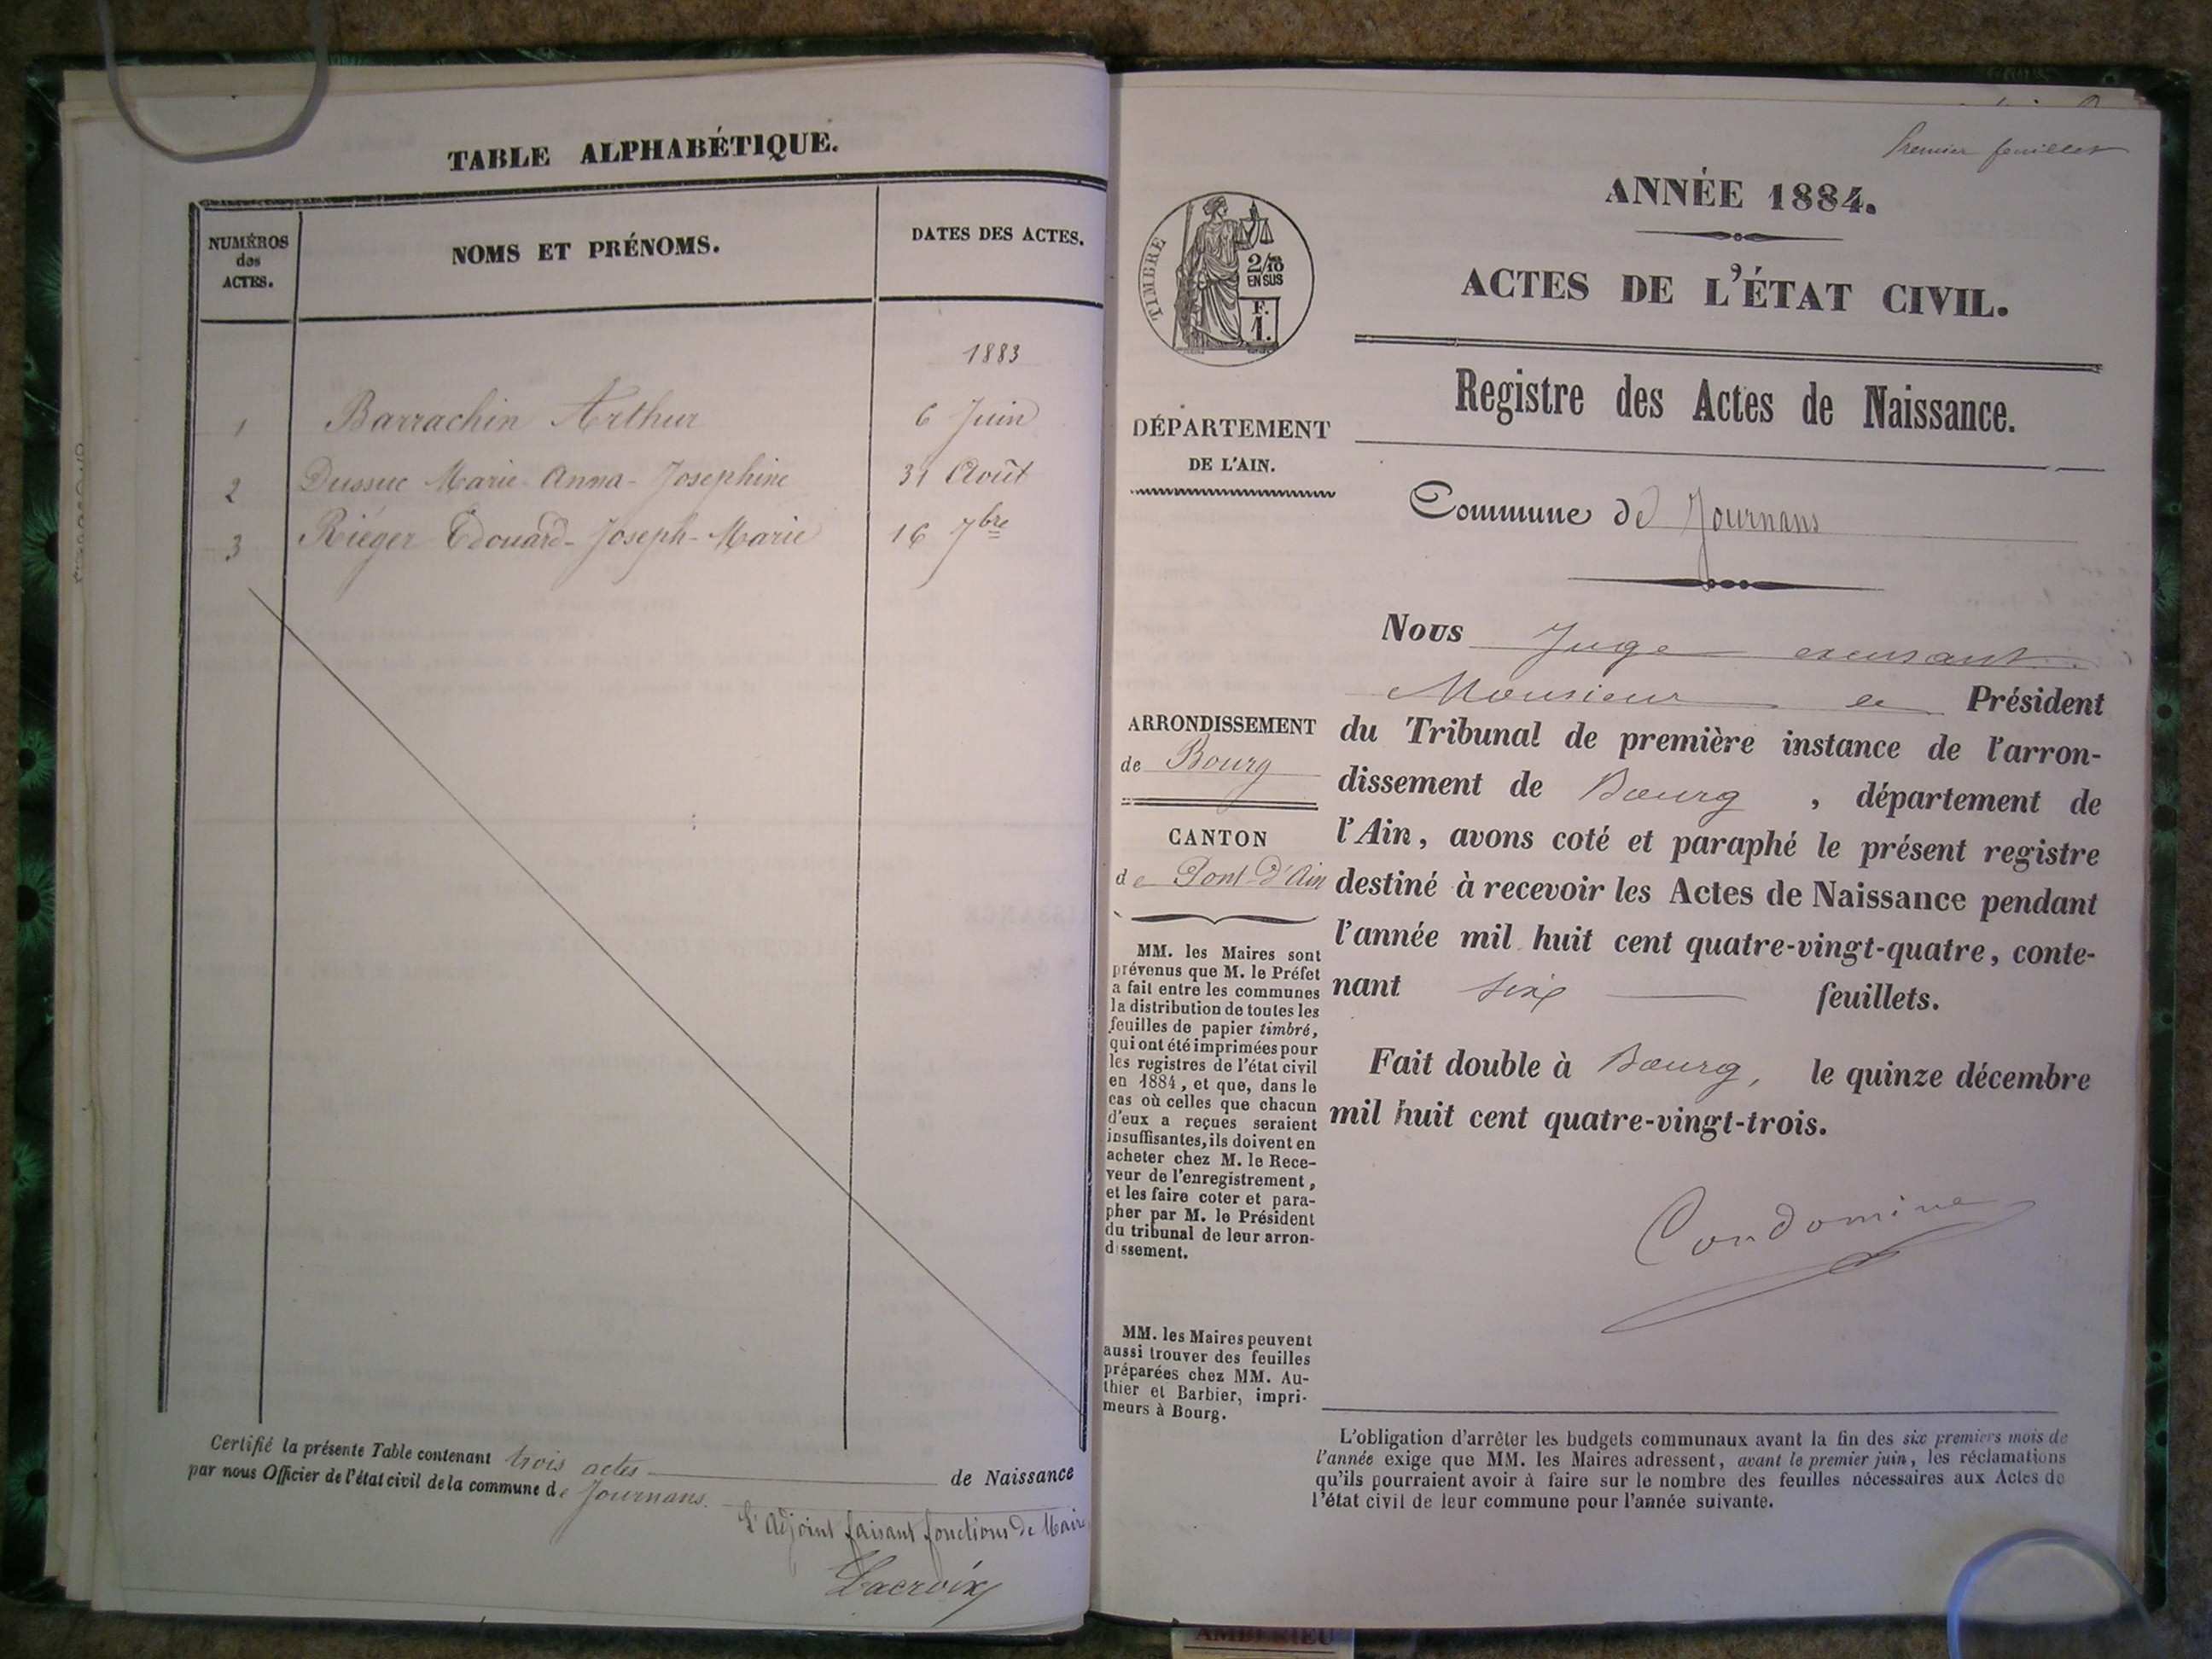 TABLE ALPHABÉTIQUE.
NUMÉROS
des
ACTES.
NOMS ET PRÉNOMS.
DATES DES ACTES.
1883
1 Barrachin Arthur 6 Juin
2 Dussuc Marie Anna-Josephine 31 Août
3 Riéger Edouard-Joseph-Marie 16 7bre
Certifié la présente Table contenant trois actes de Naissance
par nous Officier de l'état civil de la commune de Journans.
L'Adjoint faisant fonctions de Maire
Lacroix
Premier feuillet
ANNÉE 1884.
ACTES DE L'ÉTAT CIVIL.
TIMBRE
2/10
EN SUS
F.
1.
Registre des Actes de Naissance.
DÉPARTEMENT
DE L'AIN.
Commune de Journans
ARRONDISSEMENT
de Bourg
CANTON
de Pont-d'Ain
MM. les Maires sont
prévenus que M. le Préfet
a fait entre les communes
la distribution de toutes les
feuilles de papier timbré,
qui ont été imprimées pour
les registres de l'état civil
en 1884, et que, dans le
cas où celles que chacun
d'eux a reçues seraient
insuffisantes, ils doivent en
acheter chez M. le Rece-
veur de l'enregistrement,
et les faire coter et para-
pher par M. le Président
du tribunal de leur arron-
dissement.
MM. les Maires peuvent
aussi trouver des feuilles
préparées chez MM. Au-
thier et Barbier, impri-
meurs à Bourg.
Nous Juge
Monsieur le Président
du Tribunal de première instance de l'arron-
dissement de Bourg, département de
l'Ain, avons coté et paraphé le présent registre
destiné à recevoir les Actes de Naissance pendant
l'année mil huit cent quatre-vingt-quatre, conte-
nant six feuillets.
Fait double à Bourg, le quinze décembre
mil huit cent quatre-vingt-trois.
Condomine
L'obligation d'arrêter les budgets communaux avant la fin des six premiers mois de
l'année exige que MM. les Maires adressent, avant le premier juin, les réclamations
qu'ils pourraient avoir à faire sur le nombre des feuilles nécessaires aux Actes de
l'état civil de leur commune pour l'année suivante.